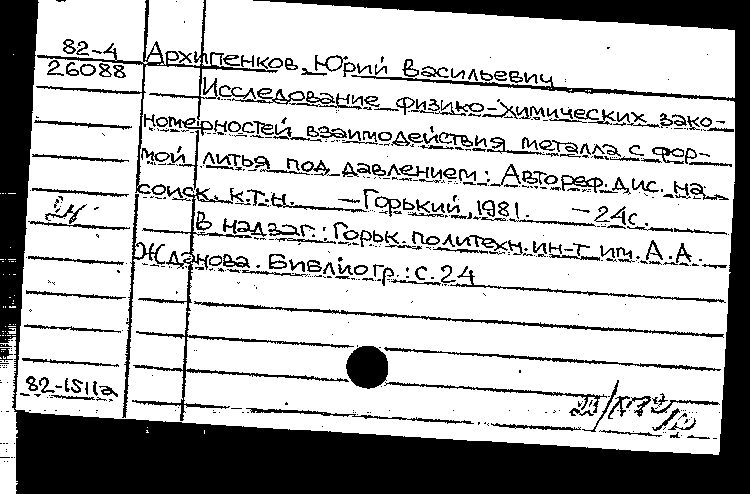 82-4
26088
Архипенков, Юрий Васильевич
Исследование физико-химических зако-
номерностей взаимодействия металла с фор-
мой литья под давлением: Автореф. дис. на
соиск. к.т.н. — Горький, 1981. — 24с.
В надзаг.: Горьк. политехн. ин-т им. А.А.
Жданова. Библиогр.: с. 24
82-1511а